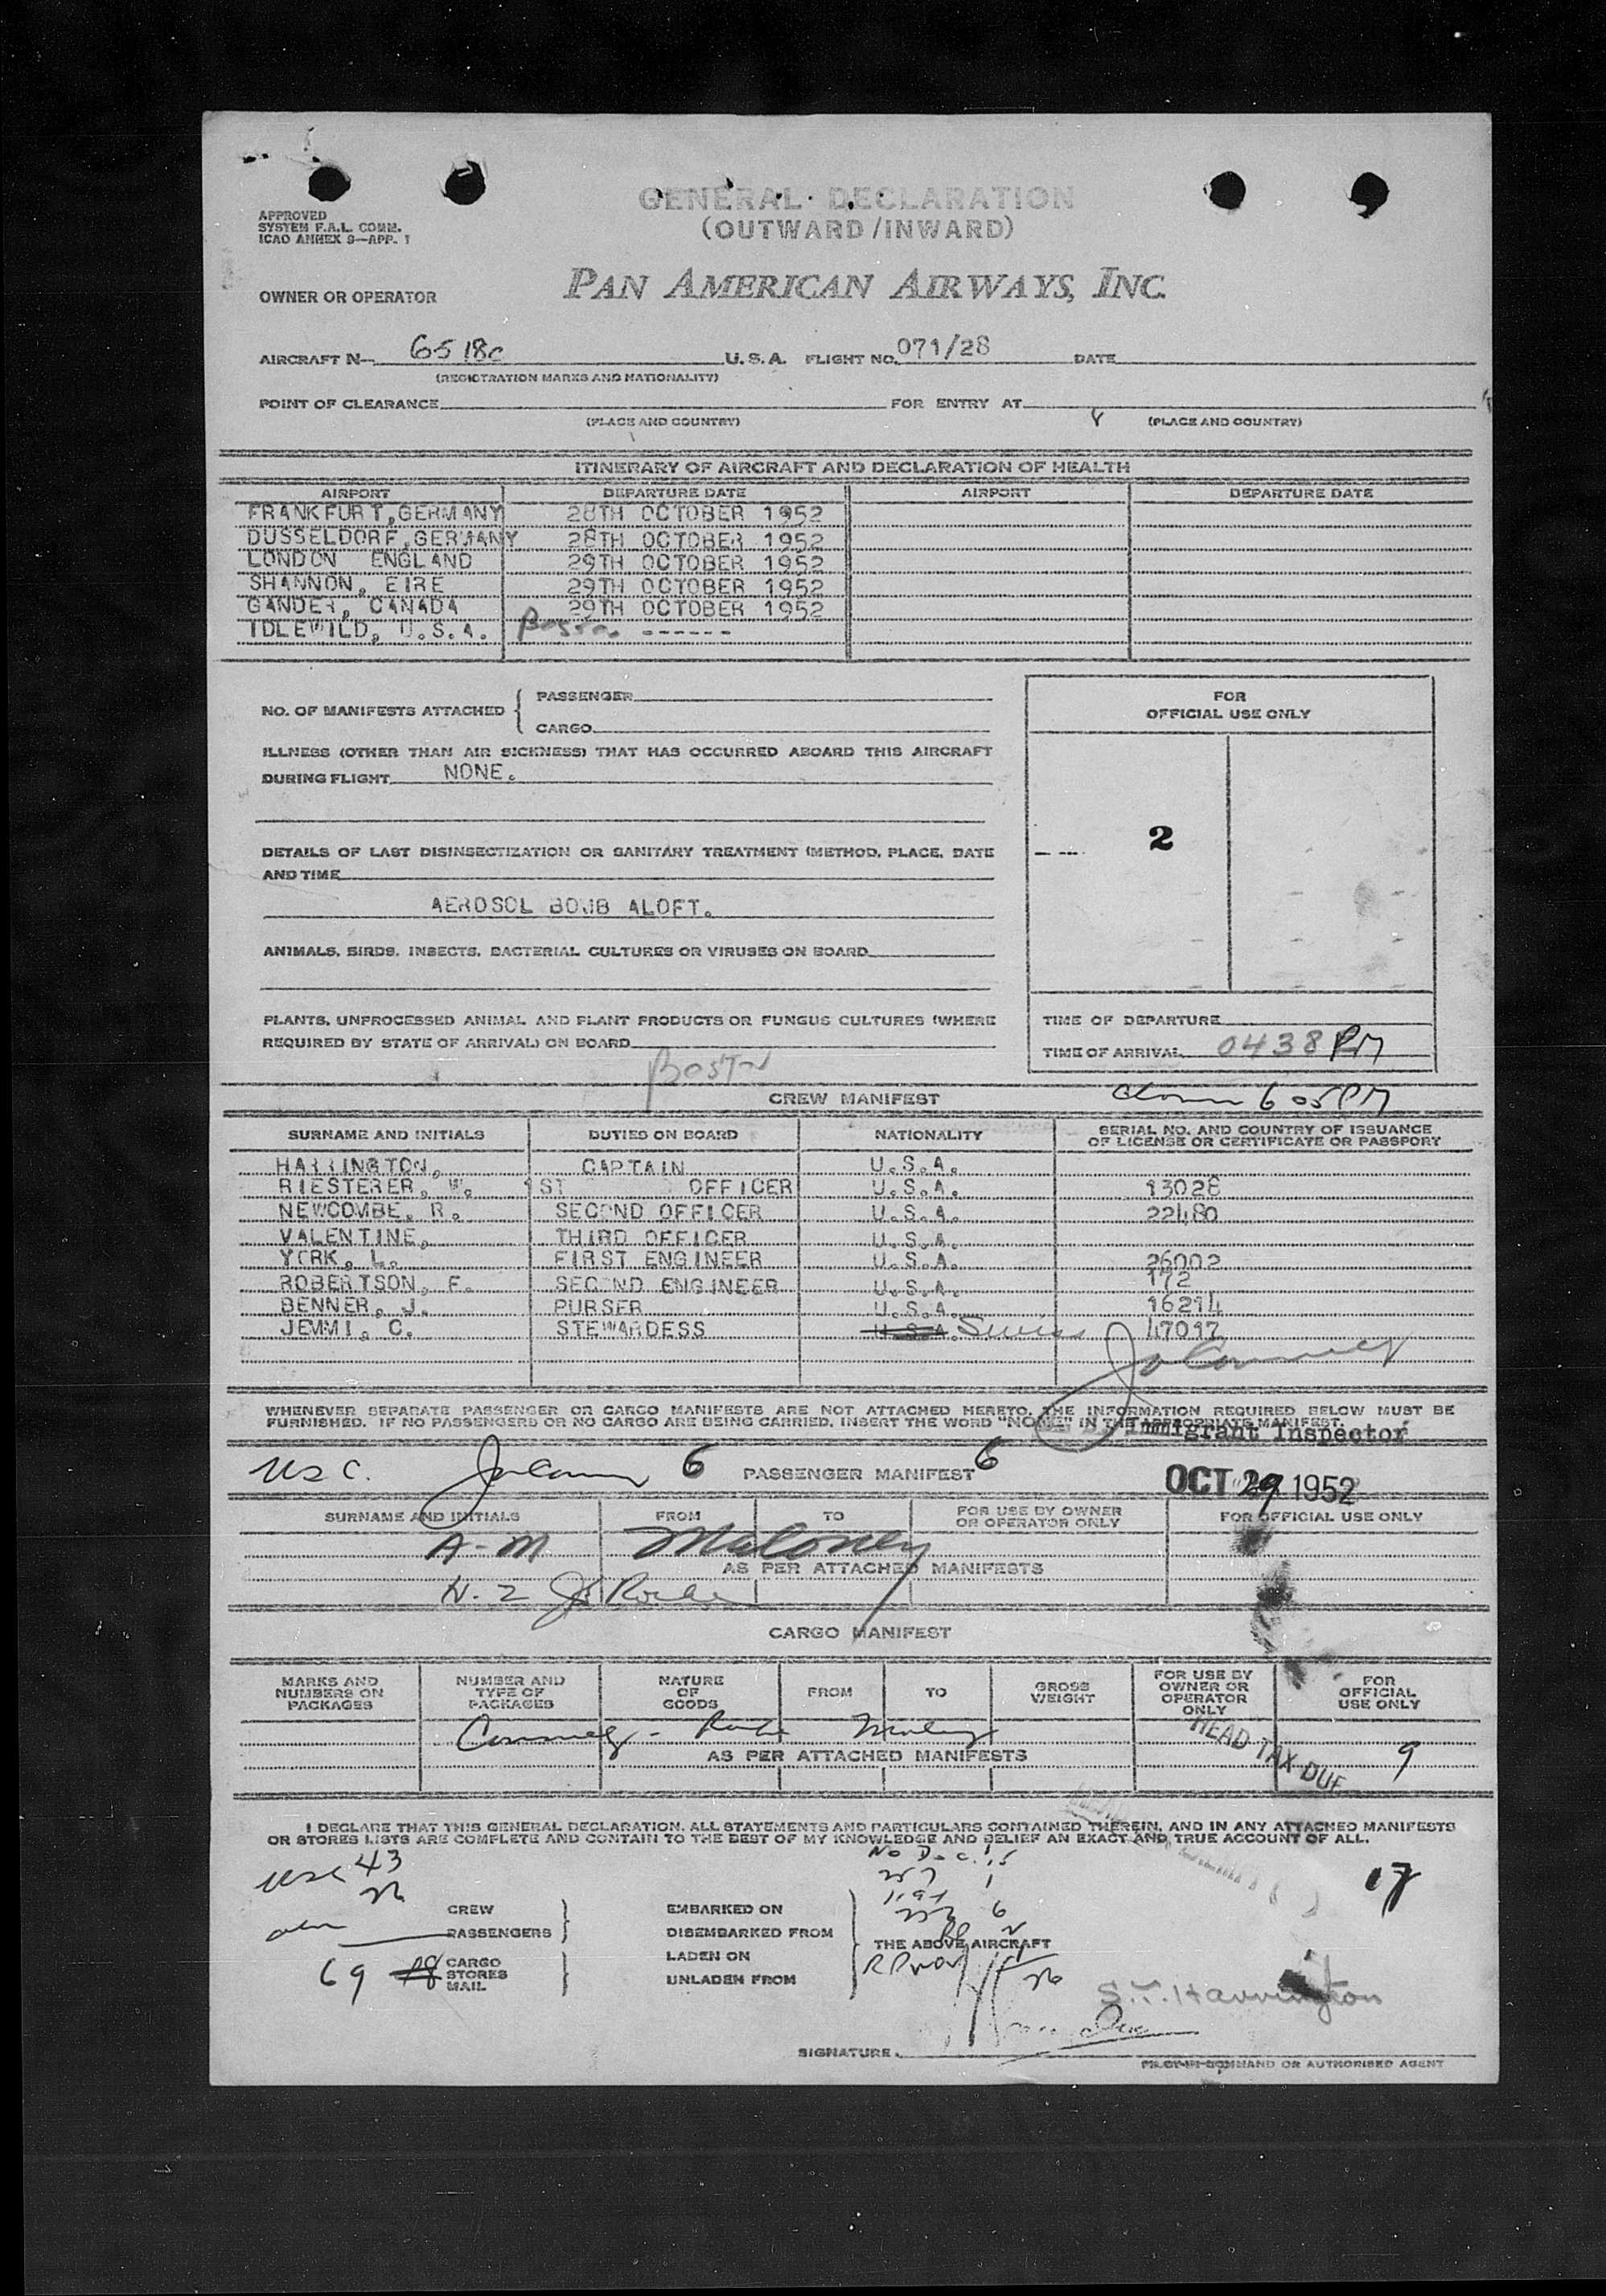 GENERAL DECLARATION
(OUTWARD/INWARD)
APPROVED
SYSTEM F.A.L. COMM.
ICAO ANNEX 9—APP. 1
OWNER OR OPERATOR PAN AMERICAN AIRWAYS, INC.
AIRCRAFT N— 6518c U.S.A. FLIGHT NO. 071/28 DATE
(REGISTRATION MARKS AND NATIONALITY)
POINT OF CLEARANCE FOR ENTRY AT
(PLACE AND COUNTRY) (PLACE AND COUNTRY)
ITINERARY OF AIRCRAFT AND DECLARATION OF HEALTH
AIRPORT DEPARTURE DATE AIRPORT DEPARTURE DATE
FRANKFURT, GERMANY 28TH OCTOBER 1952
DUSSELDORF, GERMANY 28TH OCTOBER 1952
LONDON ENGLAND 29TH OCTOBER 1952
SHANNON, EIRE 29TH OCTOBER 1952
GANDER, CANADA 29TH OCTOBER 1952
IDLEWILD, U.S.A. Boston ------
NO. OF MANIFESTS ATTACHED { PASSENGER
CARGO
FOR
OFFICIAL USE ONLY
ILLNESS (OTHER THAN AIR SICKNESS) THAT HAS OCCURRED ABOARD THIS AIRCRAFT
DURING FLIGHT NONE.
2
DETAILS OF LAST DISINSECTIZATION OR SANITARY TREATMENT (METHOD, PLACE, DATE
AND TIME
AEROSOL BOMB ALOFT.
ANIMALS, BIRDS, INSECTS, BACTERIAL CULTURES OR VIRUSES ON BOARD
PLANTS, UNPROCESSED ANIMAL AND PLANT PRODUCTS OR FUNGUS CULTURES (WHERE
REQUIRED BY STATE OF ARRIVAL) ON BOARD
TIME OF DEPARTURE
TIME OF ARRIVAL 0438 PM
BOSTON
CREW MANIFEST
6 05 PM
SURNAME AND INITIALS DUTIES ON BOARD NATIONALITY SERIAL NO. AND COUNTRY OF ISSUANCE
OF LICENSE OR CERTIFICATE OR PASSPORT
HARRINGTON, CAPTAIN U.S.A.
RIESTERER, W. 1ST OFFICER U.S.A. 13028
NEWCOMBE, R. SECOND OFFICER U.S.A. 22480
VALENTINE, THIRD OFFICER U.S.A.
YORK, L. FIRST ENGINEER U.S.A. 26002
ROBERTSON, F. SECOND ENGINEER U.S.A. 172
BENNER, J. PURSER U.S.A. 16214
JEMMI, C. STEWARDESS U.S.A. Swiss 47017
WHENEVER SEPARATE PASSENGER OR CARGO MANIFESTS ARE NOT ATTACHED HERETO, THE INFORMATION REQUIRED BELOW MUST BE
FURNISHED. IF NO PASSENGERS OR NO CARGO ARE BEING CARRIED, INSERT THE WORD "NONE" IN THE APPROPRIATE MANIFEST.
Immigrant Inspector
USC. 6 PASSENGER MANIFEST 6
OCT 29 1952
SURNAME AND INITIALS FROM TO FOR USE BY OWNER
OR OPERATOR ONLY FOR OFFICIAL USE ONLY
A-M Maloney
AS PER ATTACHED MANIFESTS
N-Z Roche
CARGO MANIFEST
MARKS AND
NUMBERS ON
PACKAGES NUMBER AND
TYPE OF
PACKAGES NATURE
OF
GOODS FROM TO GROSS
WEIGHT FOR USE BY
OWNER OR
OPERATOR
ONLY FOR
OFFICIAL
USE ONLY
AS PER ATTACHED MANIFESTS
HEAD TAX DUE 9
I DECLARE THAT THIS GENERAL DECLARATION, ALL STATEMENTS AND PARTICULARS CONTAINED THEREIN, AND IN ANY ATTACHED MANIFESTS
OR STORES LISTS ARE COMPLETE AND CONTAIN TO THE BEST OF MY KNOWLEDGE AND BELIEF AN EXACT AND TRUE ACCOUNT OF ALL.
USC 43
26
17
CREW
PASSENGERS }
69 CARGO
STORES
MAIL }
EMBARKED ON
DISEMBARKED FROM
LADEN ON
UNLADEN FROM
THE ABOVE AIRCRAFT
26
S.T. Harrington
SIGNATURE
PILOT-IN-COMMAND OR AUTHORISED AGENT